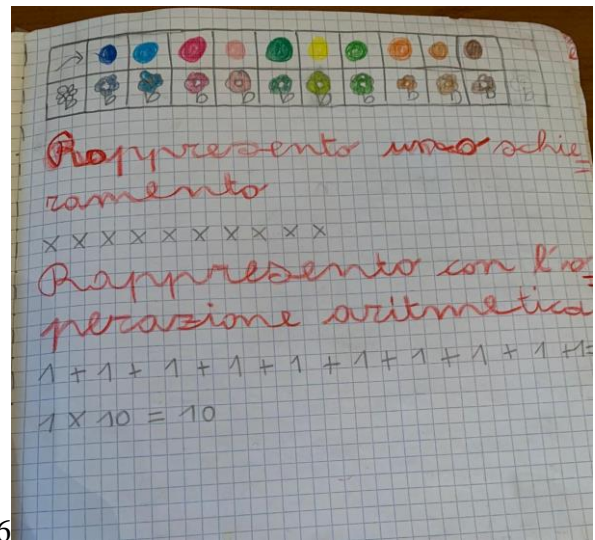 Rappresento uno schie=
ramento
x x x x x x x x x x
Rappresento con l'o=
perazione aritmetica
1 + 1 + 1 + 1 + 1 + 1 + 1 + 1 + 1 +1=
1 x 10 = 10
6